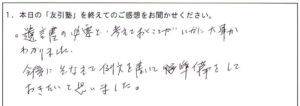 1. 本日の「友引塾」を終えてのご感想をお聞かせください。
。遺言書の必要と、考えておくことがいかに大事か
わかりました。
今後に生なまで例文を書いて 準備をして
おきたいと思いました。